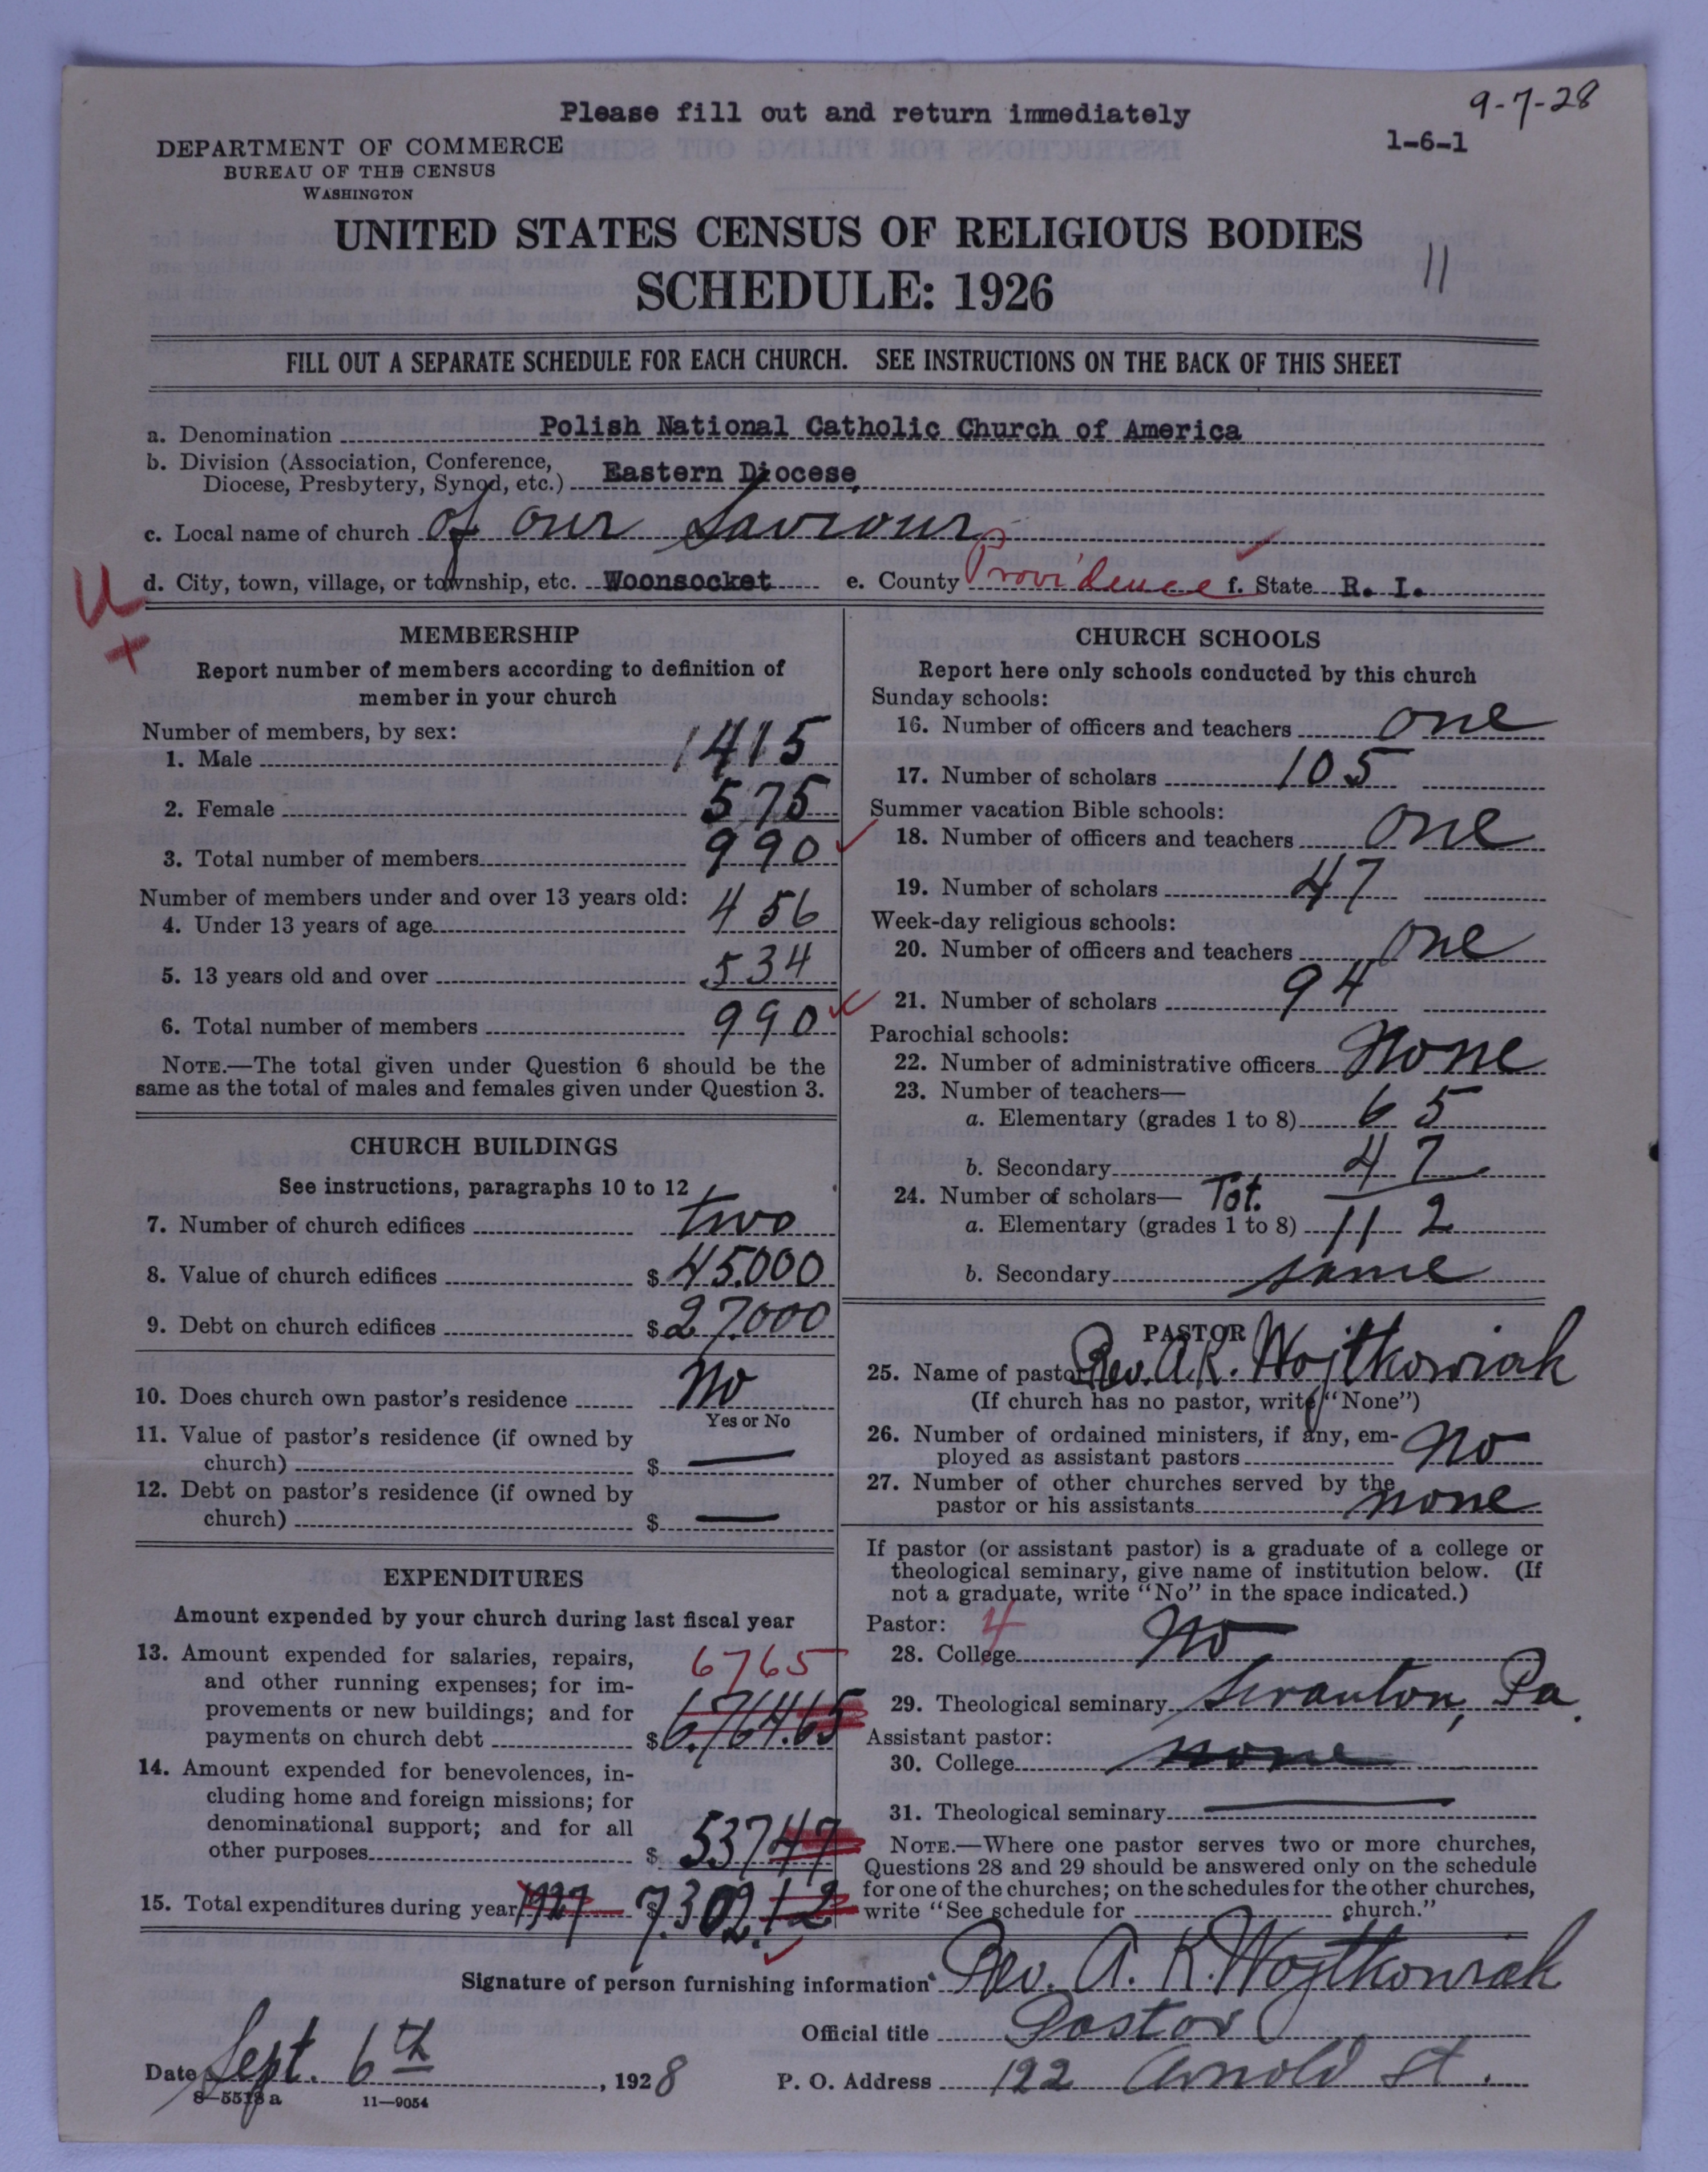 Please fill out and return immediately
9-7-28
1-6-1
DEPARTMENT OF COMMERCE
BUREAU OF THE CENSUS
WASHINGTON
UNITED STATES CENSUS OF RELIGIOUS BODIES
SCHEDULE: 1926
11
FILL OUT A SEPARATE SCHEDULE FOR EACH CHURCH. SEE INSTRUCTIONS ON THE BACK OF THIS SHEET
a. Denomination Polish National Catholic Church of America
b. Division (Association, Conference,
Diocese, Presbytery, Synod, etc.) Eastern Diocese
c. Local name of church of our Saviour
U d. City, town, village, or township, etc. Woonsocket e. County Providence f. State R. I.
+
MEMBERSHIP
Report number of members according to definition of
member in your church
Number of members, by sex:
1. Male 1415
2. Female 575
3. Total number of members 990
Number of members under and over 13 years old:
4. Under 13 years of age 456
5. 13 years old and over 534
6. Total number of members 990
NOTE.—The total given under Question 6 should be the
same as the total of males and females given under Question 3.
CHURCH BUILDINGS
See instructions, paragraphs 10 to 12
7. Number of church edifices two
8. Value of church edifices $ 45.000
9. Debt on church edifices $ 27.000
10. Does church own pastor's residence No
Yes or No
11. Value of pastor's residence (if owned by
church) $ —
12. Debt on pastor's residence (if owned by
church) $ —
EXPENDITURES
Amount expended by your church during last fiscal year
13. Amount expended for salaries, repairs,
and other running expenses; for im-
provements or new buildings; and for
payments on church debt $ 6.764.65
6765
14. Amount expended for benevolences, in-
cluding home and foreign missions; for
denominational support; and for all
other purposes $ 537 47
15. Total expenditures during year 1927 $ 7.302.12
CHURCH SCHOOLS
Report here only schools conducted by this church
Sunday schools:
16. Number of officers and teachers one
17. Number of scholars 105
Summer vacation Bible schools:
18. Number of officers and teachers one
19. Number of scholars 47
Week-day religious schools:
20. Number of officers and teachers one
21. Number of scholars 94
Parochial schools:
22. Number of administrative officers None
23. Number of teachers—
a. Elementary (grades 1 to 8) 65
b. Secondary 47
24. Number of scholars— Tot.
a. Elementary (grades 1 to 8) 112
b. Secondary same
PASTOR
25. Name of pastor Rev. A.K. Wojtkowiak
(If church has no pastor, write "None")
26. Number of ordained ministers, if any, em-
ployed as assistant pastors No
27. Number of other churches served by the
pastor or his assistants none
If pastor (or assistant pastor) is a graduate of a college or
theological seminary, give name of institution below. (If
not a graduate, write "No" in the space indicated.)
Pastor: 4
28. College No
29. Theological seminary Scranton, Pa.
Assistant pastor:
30. College none
31. Theological seminary —
NOTE.—Where one pastor serves two or more churches,
Questions 28 and 29 should be answered only on the schedule
for one of the churches; on the schedules for the other churches,
write "See schedule for church."
Signature of person furnishing information Rev. A. K. Wojtkowiak
Official title Pastor
Date Sept. 6th, 1928 P. O. Address 122 Arnold St.
8—5518 a 11—9054